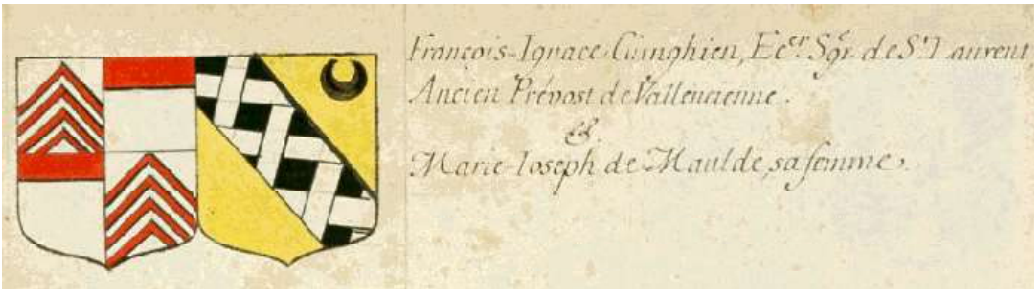 François-Ignace Cunghien, Ec.er Sgr. de St. Laurent,
Ancien Prévost de Vallencienne.
&
Marie-Ioseph de Maulde, sa femme.